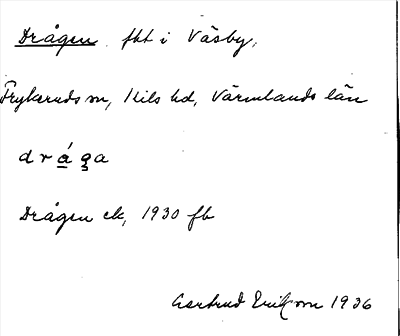 Drågen fht i Väsby,
Frykeruds sn, Kils hd, Värmlands län
d r å g a
Drågen ek, 1930 fb
Gertrud Ericson 1936